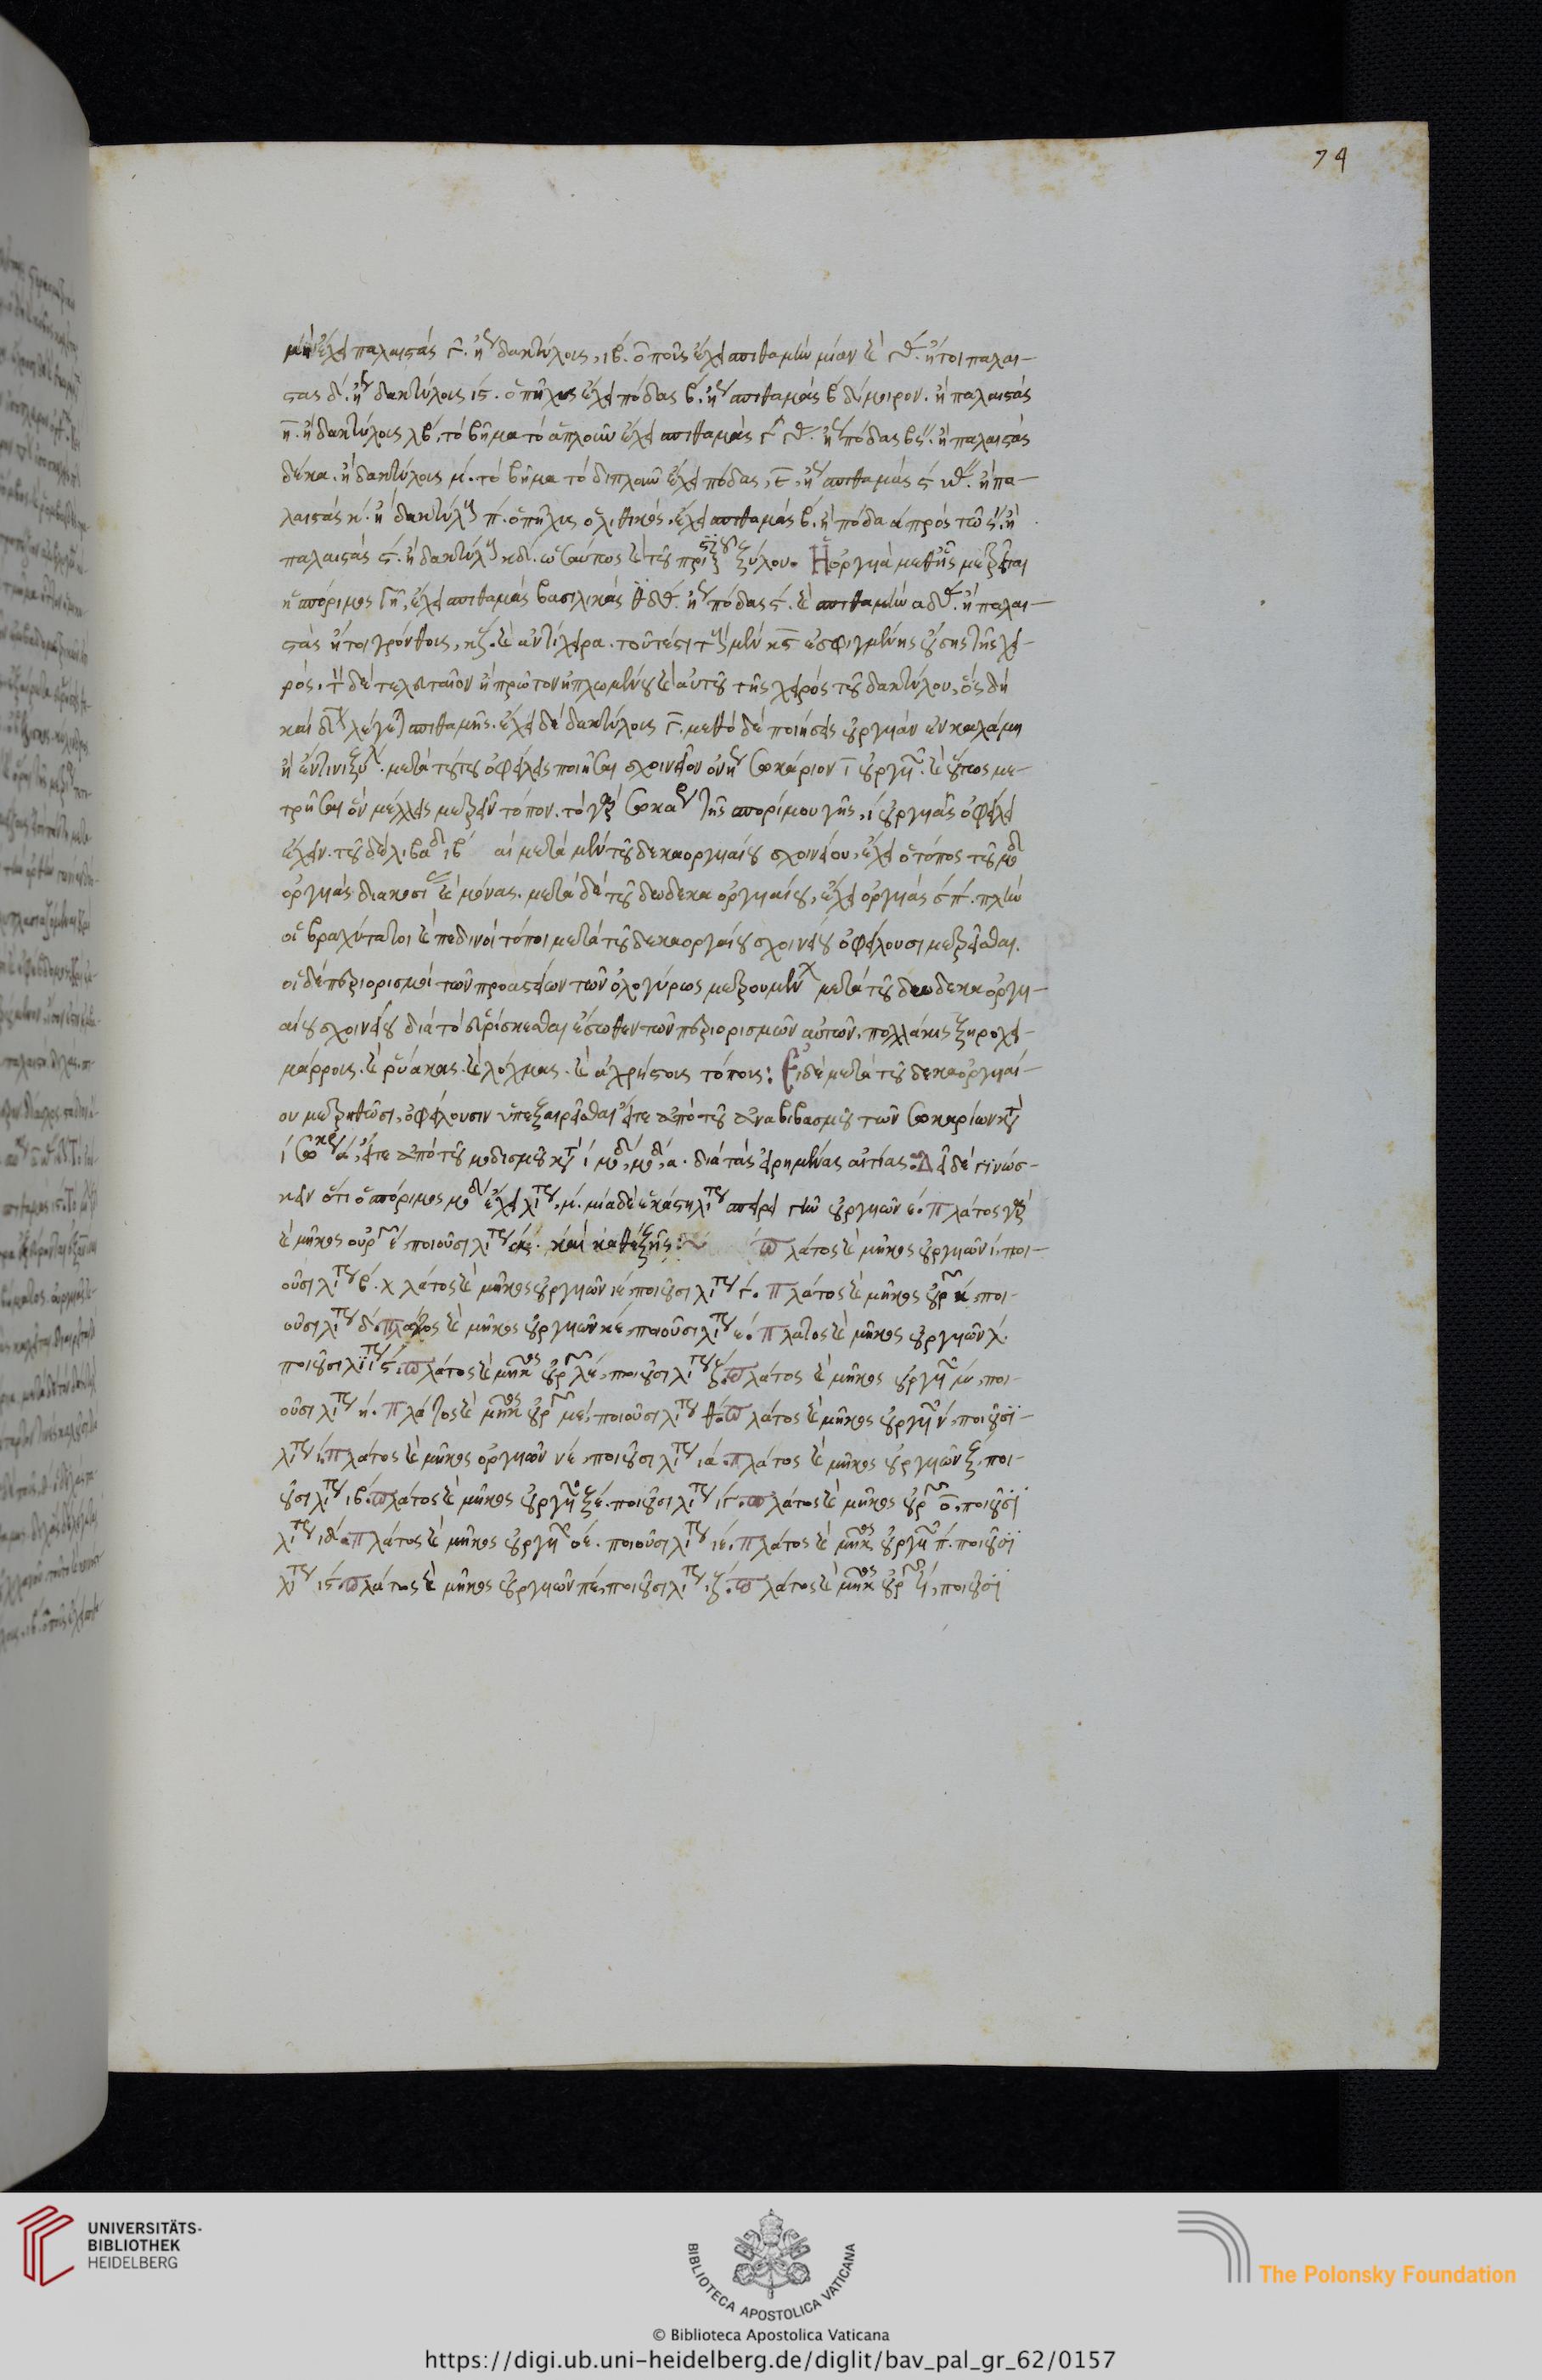 74
μὴ ἔχει παλαιστὰς γ. ἤγουν δακτύλους, ιβ. ὁ ποῦς ἔχει σπιθαμὴν μίαν καὶ γʹ. ἤτοι παλαι-
στὰς δ. ἤγουν δακτύλους ις. ὁ πῆχυς ἔχει πόδας β. ἤγουν σπιθαμὰς β δίμοιρον. ἢ παλαιστὰς
η. ἢ δακτύλους λβ. τὸ βῆμα τὸ ἁπλοῦν ἔχει σπιθαμὰς γ γʹ. ἢ πόδας β ςʹ. ἢ παλαιστὰς
δέκα. ἢ δακτύλους μ. τὸ βῆμα τὸ διπλοῦν ἔχει πόδας, ε, ἤγουν σπιθαμὰς ς. ἢ πα-
λαιστὰς κ. ἢ δακτύλους π. ὁ πῆχυς ὁ λιθικὸς, ἔχει σπιθαμὰς β. ἢ πόδα α πρὸς τῶ ςʹ. ἢ
παλαιστὰς ς. ἢ δακτύλους κδ. ὡσαύτως καὶ τοῦ πριστικοῦ ξύλου. Ἡ ὀργυιὰ μεθ' ἧς μετρεῖται
ἡ σπόριμος γῆ, ἔχει σπιθαμὰς βασιλικὰς θ δʹ. ἢ πόδας ς. καὶ σπιθαμὴν α δʹ. ἢ παλαι-
στὰς ἤτοι γρόνθους, κζ. καὶ ἀντίχειρα. τουτέστι τῶν μὲν κς ἐσφιγμένης οὔσης τῆς χει-
ρός. τοῦ δὲ τελευταῖον ἢ πρῶτον ἡπλωμένου καὶ αὐτοῦ τῆς χειρὸς τοῦ δακτύλου, ὃς δὴ
καὶ λέγεται σπιθαμῆς. ἔχει δὲ δακτύλους γ. μεθ' ὃ δὲ ποιήσεις οὐργυιὰν ἐν καλάμη
ἢ ἔν τινι ξύλω. μετὰ τούτου ὀφείλεις ποιῆσαι σχοινίον ἤγουν σωκάριον ι οὐργυιῶν. καὶ οὕτως με-
τρῆσαι ὃν μέλλεις μετρεῖν τόπον. τὸ γὰρ σωκάριον τῆς σπορίμου γῆς, ι οὐργυιὰς ὀφείλει
ἔχειν. τοῦ δὲ λιβαδίου ιβ αἱ μετὰ μὲν τοῦ δεκαοργυιαίου σχοινίου, ἔχει ὁ τόπος τοῦ μοδίου
ὀργυιὰς διακοσίας καὶ μόνας. μετὰ δὲ τοῦ δωδεκαοργυιαίου, ἔχει ὀργυιὰς σπ. πλὴν
οἱ βραχύτατοι καὶ πεδινοὶ τόποι μετὰ τοῦ δεκαοργυαίου σχοινίου ὀφείλουσι μετρεῖσθαι.
οἱ δὲ περιορισμοὶ τῶν προαστείων τῶν ὁλογύρως μετρουμένων μετὰ τοῦ δωδεκαοργυ-
αίου σχοινίου διὰ τὸ εὑρίσκεσθαι ἔσωθεν τῶν περιορισμῶν αὐτῶν, πολλάκις ξηροχει-
μάρρους. καὶ ῥύακας. καὶ λόχμας. καὶ ἀχρήστους τόπους: Εἰ δὲ μετὰ τοῦ δεκαοργυιαί-
ου μετρηθῶσι, ὀφείλουσιν ὑπεξαιρεῖσθαι εἴτε ἀπὸ τοῦ ἀναβιβασμοῦ τῶν σωκαρίων κατὰ
ι σωκάρια α, εἴτε ἀπὸ τοῦ μοδισμοῦ κατὰ ι μοδίους, μόδιον, α. διὰ τὰς εἰρημένας αἰτίας. Δεῖ δὲ γινώσ-
κειν ὅτι ὁ σπόριμος μόδιος ἔχει λίτρας, μ. μία δὲ ἑκάστη λίτρα σπείρει γῆν οὐργυιῶν ε. πλάτος γὰρ
καὶ μῆκος οὐργυιῶν ε, ποιοῦσι λίτραν α. καὶ καθεξῆς: πλάτος καὶ μῆκος οὐργυιῶν ι, ποι-
οῦσι λίτρας β. πλάτος καὶ μῆκος οὐργυιῶν ιε, ποιοῦσι λίτρας γ. Πλάτος καὶ μῆκος οὐργυιῶν κ, ποι-
οῦσι λίτρας δ. πλάτος καὶ μῆκος οὐργυιῶν κε, ποιοῦσι λίτρας ε. Πλάτος καὶ μῆκος οὐργυιῶν λ.
ποιοῦσι λίτρας ς. πλάτος καὶ μῆκος οὐργυιῶν λε, ποιοῦσι λίτρας ζ. πλάτος καὶ μῆκος οὐργυιῶν μ, ποι-
οῦσι λίτρας η. Πλάτος καὶ μῆκος οὐργυιῶν με, ποιοῦσι λίτρας θ. πλάτος καὶ μῆκος οὐργυιῶν ν, ποιοῦσι
λίτρας ι. πλάτος καὶ μῆκος οργυιῶν νε, ποιοῦσι λίτρας ια. πλάτος καὶ μῆκος οὐργυιῶν ξ, ποι-
οῦσι λίτρας ιβ. πλάτος καὶ μῆκος οὐργυιῶν ξε. ποιοῦσι λίτρας ιγ. πλάτος καὶ μῆκος οὐργυιῶν ο, ποιοῦσι
λίτρας ιδ. πλάτος καὶ μῆκος οὐργυιῶν οε. ποιοῦσι λίτρας ιε. πλάτος καὶ μῆκος οὐργυιῶν π. ποιοῦσι
λίτρας ις. πλάτος καὶ μῆκος οὐργυιῶν πε, ποιοῦσι λίτρας ιζ. πλάτος καὶ μῆκος οὐργυιῶν ϟ, ποιοῦσι
UNIVERSITÄTS-
BIBLIOTHEK
HEIDELBERG
BIBLIOTECA APOSTOLICA VATICANA
The Polonsky Foundation
© Biblioteca Apostolica Vaticana
https://digi.ub.uni-heidelberg.de/diglit/bav_pal_gr_62/0157